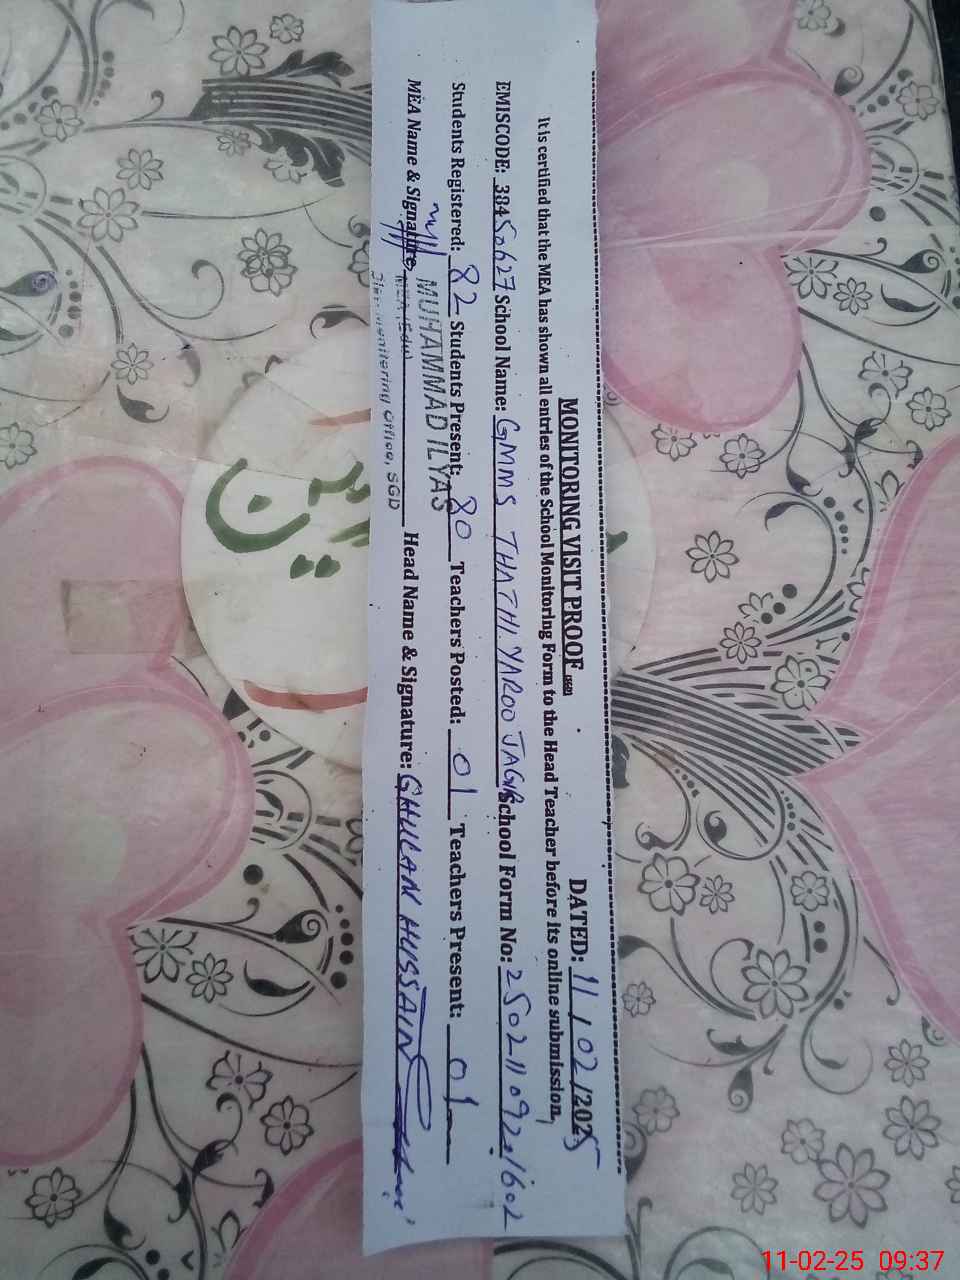 MONITORING VISIT PROOF (SED) DATED: 11/02/2025
It is certified that the MEA has shown all entries of the School Monitoring Form to the Head Teacher before its online submission,
EMISCODE: 38450627 School Name: GMMS THATHI YAROO JAGIR School Form No: 25021109201602
Students Registered: 82 Students Present: 80 Teachers Posted: 01 Teachers Present: 01
MEA Name & Signature MUHAMMAD ILYAS Head Name & Signature: GHULAM HUSSAIN
MEA (Edu)
Monitoring Office, SGD
11-02-25 09:37